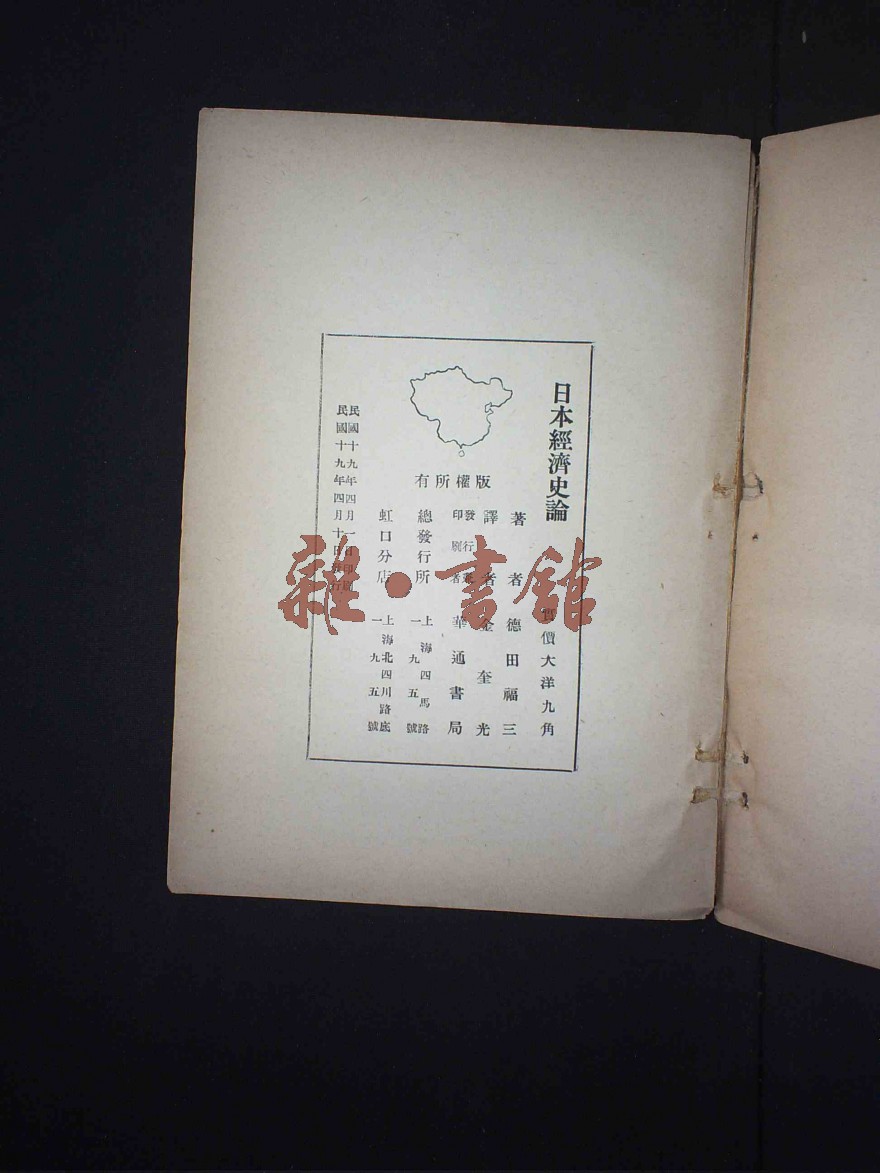 日本經濟史論
實價大洋九角
版權所有
著者 德田福三
譯者 金奎光
發行兼印刷者 華通書局
總發行所 上海四馬路一九五號
虹口分店 上海北四川路底一九五號
民國十九年四月一日印刷
民國十九年四月十日發行
雜·書館